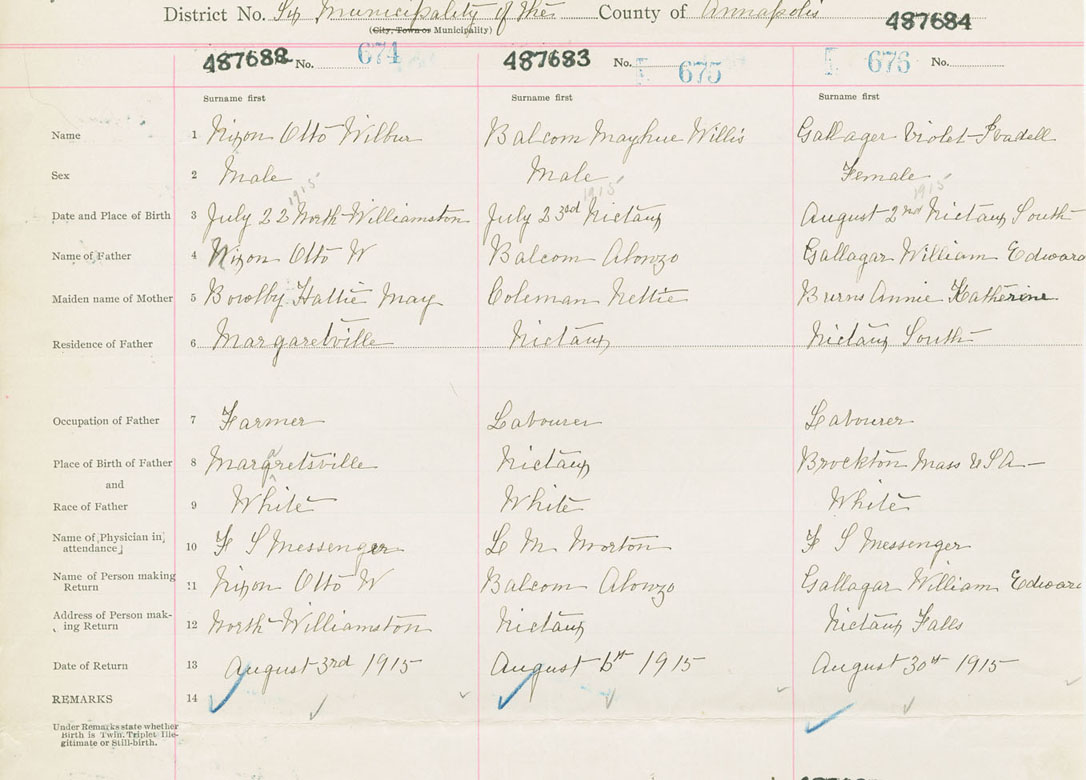 District No. Six Municipality of the County of Annapolis 487684
(City, Town or Municipality)
487682 No. 674 487683 No. 675 676 No.
Surname first Surname first Surname first
Name 1 Nixon Otto Wilbur Balcom Mayhue Willis Gallager Violet
Sex 2 Male Male Female
1915 1915 1915
Date and Place of Birth 3 July 22 North Williamston July 23rd Nictaux August 2nd Nictaux South
Name of Father 4 Nixon Otto W Balcom Alonzo Gallagar William Edward
Maiden name of Mother 5 Bowlby Hattie May Coleman Nettie Burns Annie Katherine
Residence of Father 6 Margaretville Nictaux Nictaux South
Occupation of Father 7 Farmer Labourer Labourer
Place of Birth of Father 8 Margaretsville Nictaux Brockton Mass U S A
and
Race of Father 9 White White White
Name of Physician in attendance 10 F S Messenger L M Morton F S Messenger
Name of Person making Return 11 Nixon Otto W Balcom Alonzo Gallagar William Edward
Address of Person making Return 12 North Williamston Nictaux Nictaux Falls
Date of Return 13 August 3rd 1915 August 6th 1915 August 30th 1915
REMARKS 14
Under Remarks state whether
Birth is Twin, Triplet Ille-
gitimate or Still-birth.